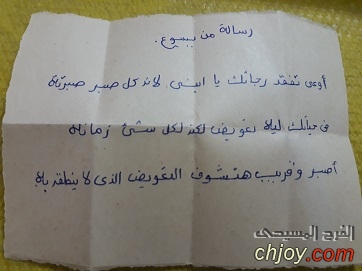 رسالة من يسوع.
أوعى تفقد رجائك يا ابنى لانه كل صبر صبرته
فى حياتك ليه تعويض لكنه لكل شئ زمانه
أصبر وقريب هتشوف التعويض الذى لا ينطق به
الفرح المسيحى
chjoy.com